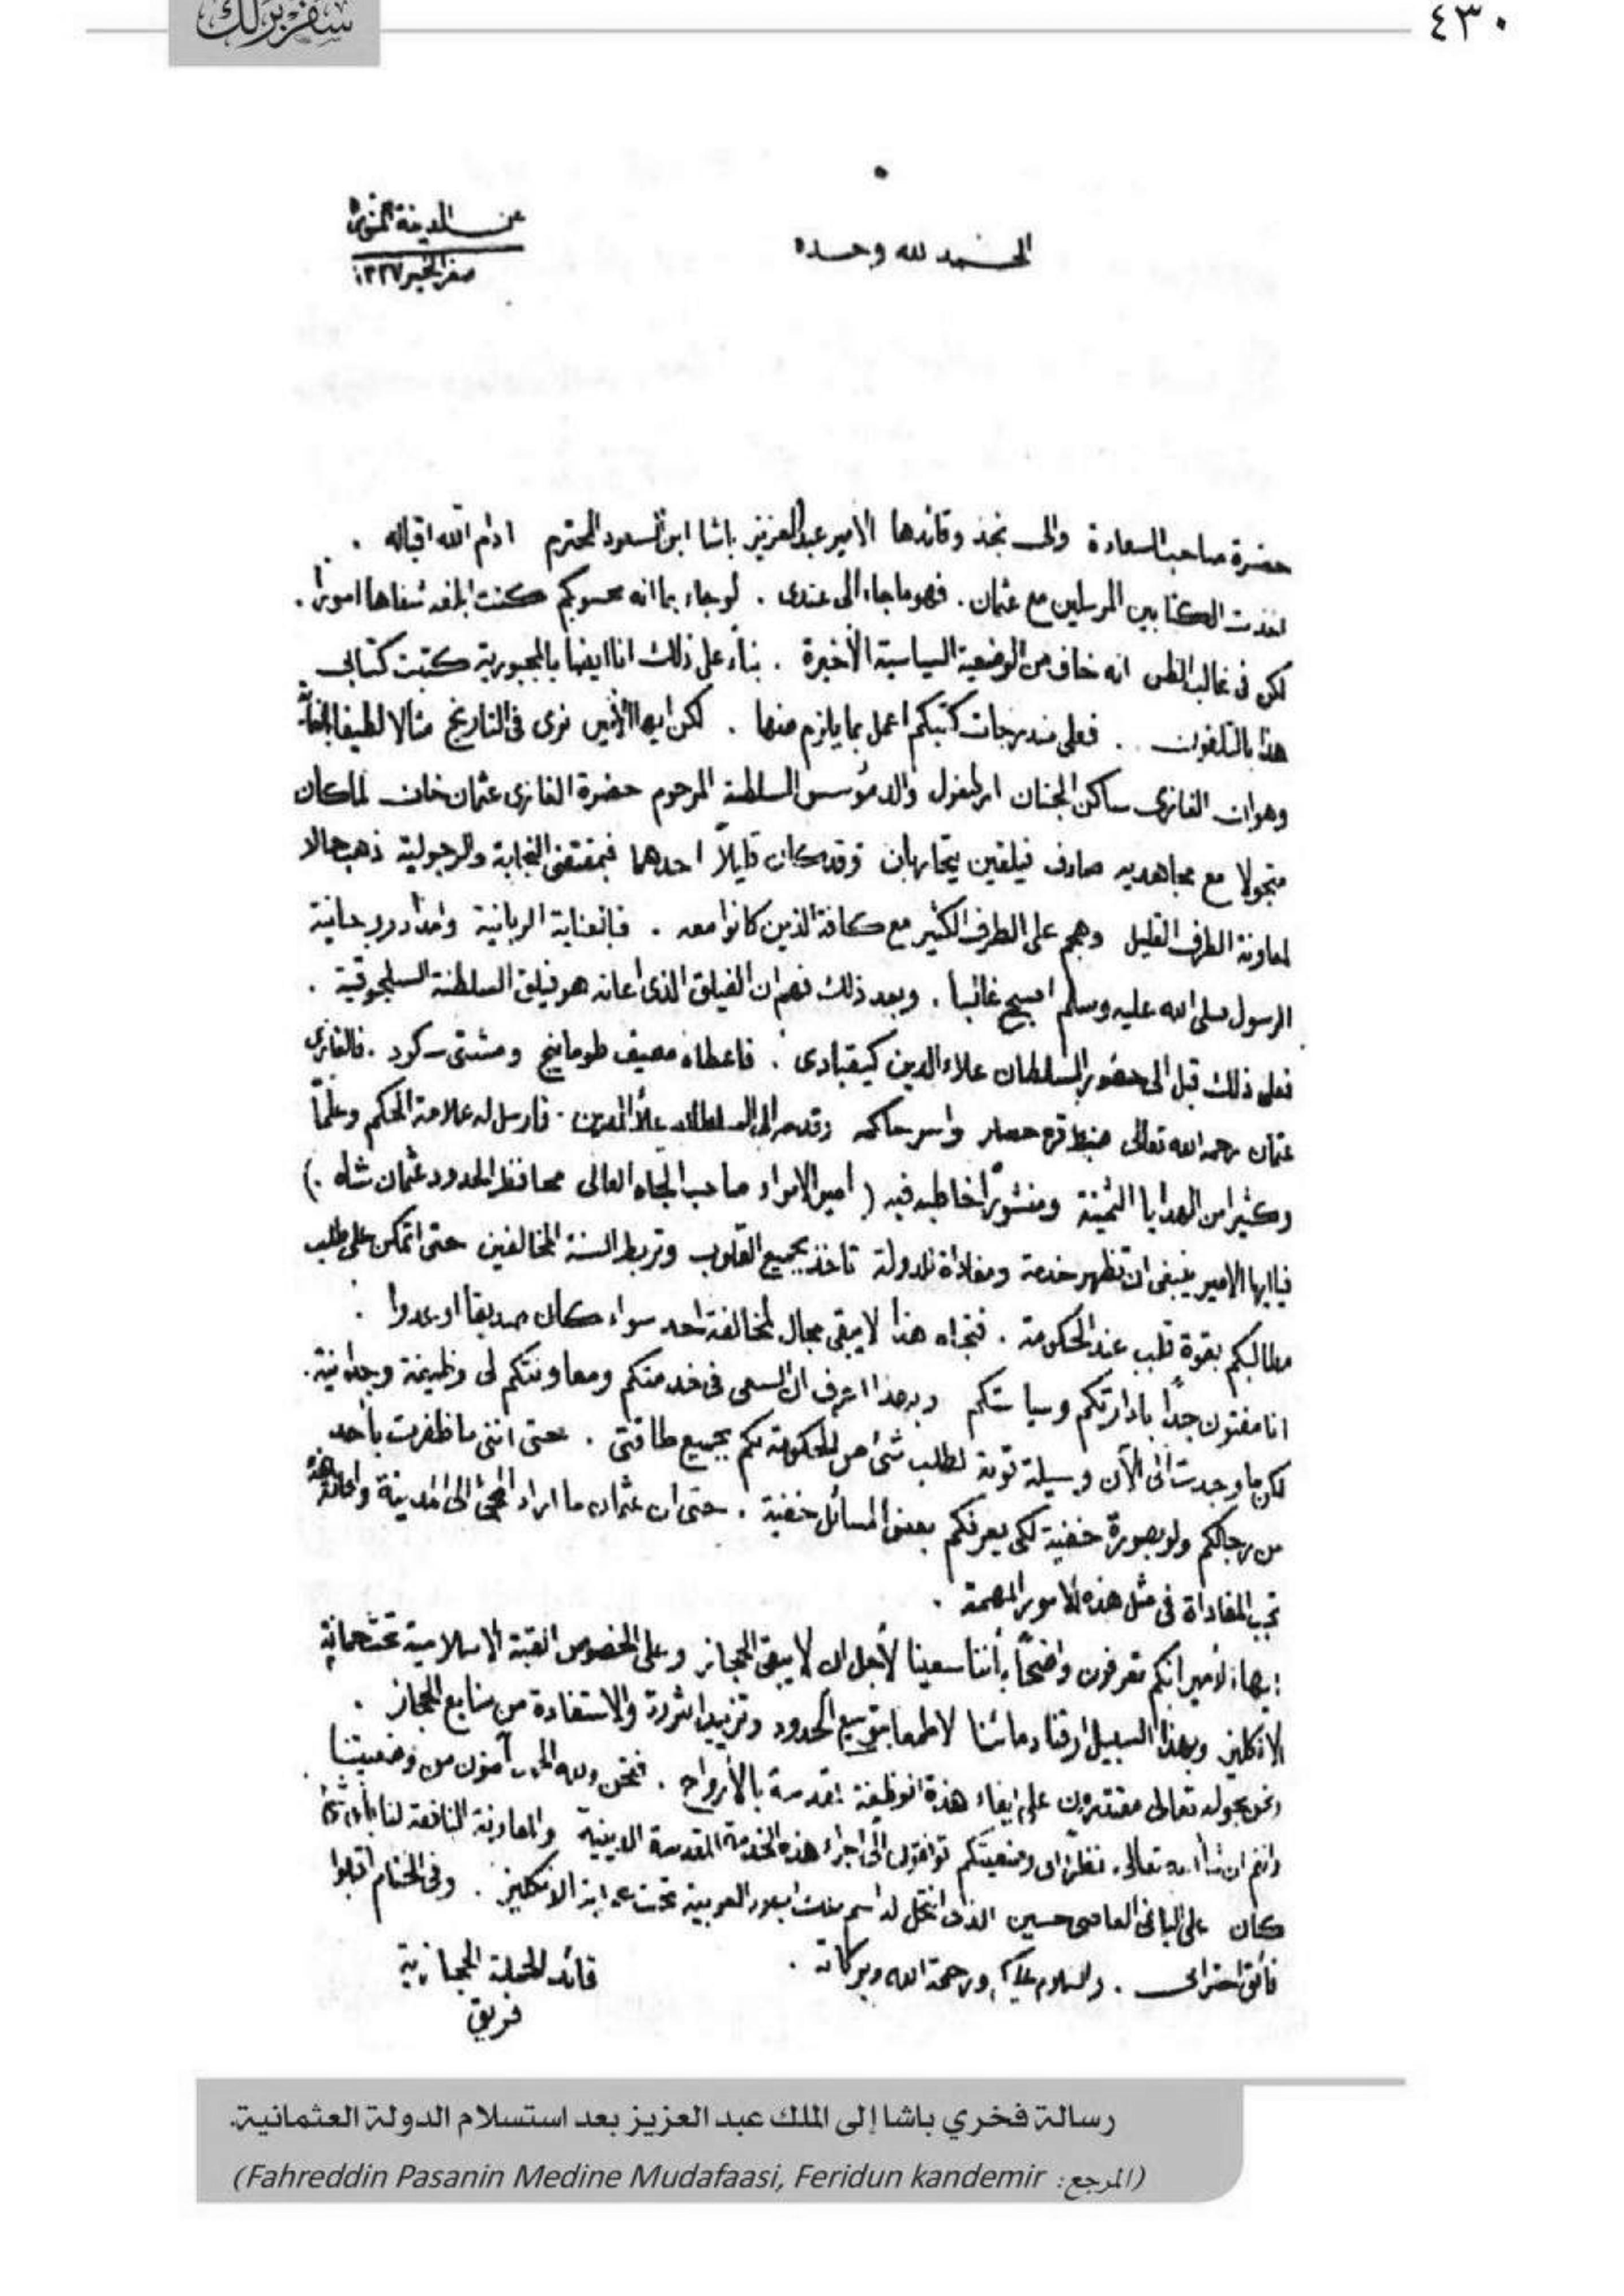 ٤٣٠
سفر برلك
الحمد لله وحده
عن المدينة المنورة
صفر الخير ١٣٣٧
حضرة صاحب السعادة والى نجد وقائدها الامير عبد العزيز باشا ابن السعود المحترم ادام الله اقباله .
اخذت الكتابين المرسلين مع عثمان . فهو ما جاء الى عندى . لو جاء بما انه محسوبكم كنت ابلغه شفاها امورا .
لكن فى غالب الظن انه خاف من الوضعية السياسية الأخيرة . بناء على ذلك انا ايضا بالمجبورية كتبت كتابى
هذا بالتلفون .. فعلى مندرجات كتبكم اعمل بما يلزم منها . لكن ايها الأمير نرى فى التاريخ مثالا لطيفا للغاية
وهو ان الغازى ساكن الجنان ارطغرل والد مؤسس السلطنة المرحوم حضرة الغازى عثمان خان لما كان
متجولا مع مجاهديه صادف فيلقين يتحاربان وقد كان قليلاً احدهما فبمقتضى النجابة والرجولية ذهب حالا
لمعاونة الطرف القليل وهجم على الطرف الكثير مع كافة الذين كانوا معه . فبالعناية الربانية وامداد روحانية
الرسول صلى الله عليه وسلم اصبح غالبا . وبعد ذلك فهم ان الفيلق الذى اعانه هو فيلق السلطنة السلجوقية .
فعلى ذلك قبل الى حضور السلطان علاء الدين كيقبادى . فاعطاه مصيف طومانيج ومشتى سكود . فالغازى
عثمان رحمه الله تعالى ضبط قره حصار واسر حاكمه وقدمه الى السلطان علاء الدين . فارسل له علامة الحكم وعلماً
وكثيرا من الهدايا الثمينة ومنشوراً خاطبه فيه ( امير الامراء صاحب الجاه العالى محافظ الحدود عثمان شاه . )
فيا ايها الامير ينبغى ان تظهر خدمة ومفاداة للدولة تاخذ بجميع القلوب وتربط السنة المخالفين حتى اتمكن على طلب
مطالبكم بقوة قلب عند الحكومة . فتجاه هذا لا يبقى مجال لمخالفة احد سواء كان صديقا او عدوا .
انا مفتون جداً بادارتكم وسياستكم وبهذا اعرف ان السعى فى خدمتكم ومعاونتكم لى وظيفة وجدانية .
لكن ما وجدت الى الآن وسيلة قوية لطلب شئ من الحكومة لكم بجميع طاقتى . حتى اننى ما ظفرت بأحد
من رجالكم ولو بصورة خفية لكى يعرفكم بعض المسائل خفية . حتى ان عثمان ما اراد المجئ الى المدينة
تجب المفاداة فى مثل هذه الامور المهمة .
ايها الأمير انكم تعرفون واضحاً بأننا سعينا لأجل ان لا يبقى الحجاز وعلى الخصوص القبة الاسلامية تحت حماية
الانكليز وبهذا السبيل ارقنا دمائنا لا طمعا بتوسيع الحدود وتزييد الثروة والاستفادة من منابع الحجاز .
ونحن بحوله تعالى مقتدرون على ايفاء هذه الوظيفة المقدسة بالأرواح . فنحن ولله الحمد آمنون من وضعيتنا .
وانتم ان شاء الله تعالى نظرا الى وضعيتكم توافقون الى اجراء هذه الخدمة المقدسة الدينية والمعاونة النافعة لنا بأى شئ
كان على الباغى العاصى حسين الذى انتحل له اسم ملك البلاد العربية تحت حماية الانكليز . وفى الختام اقبلوا
فائق احترامى . والسلام عليكم ورحمة الله وبركاته .
قائد الحملة الحجازية
فريق
رسالة فخري باشا إلى الملك عبد العزيز بعد استسلام الدولة العثمانية.
(المرجع: Fahreddin Pasanin Medine Mudafaasi, Feridun kandemir)